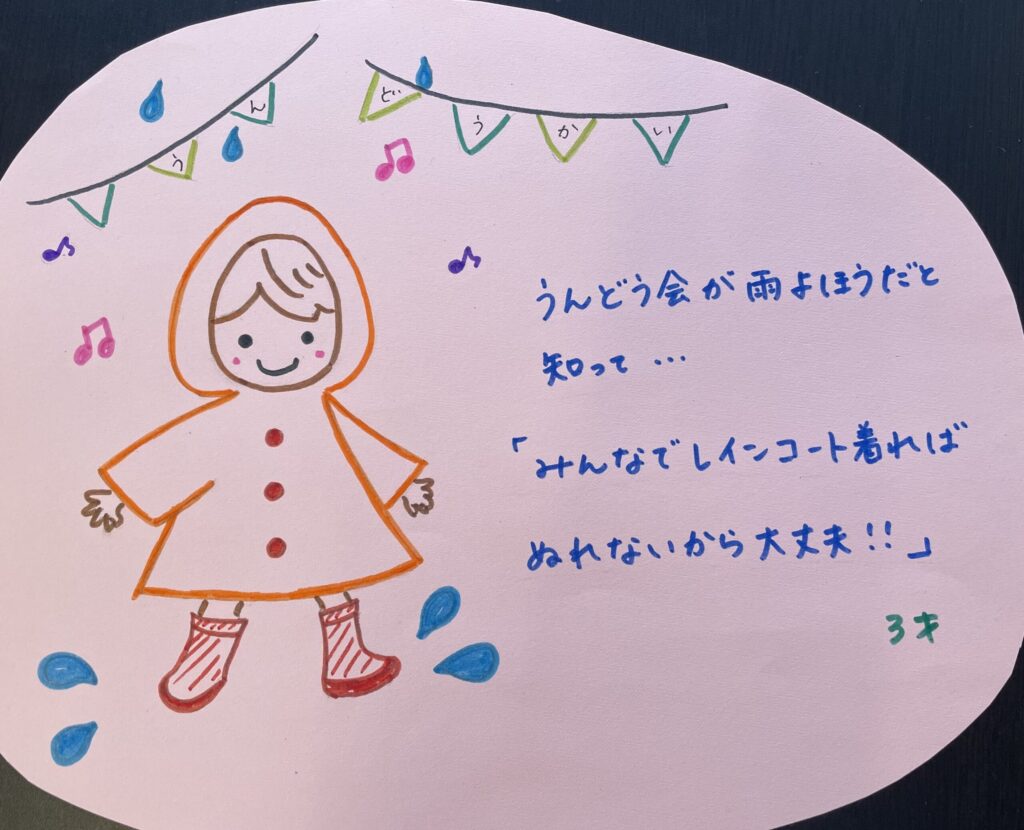 うんどうかい
うんどう会が雨よほうだと
知って…
「みんなでレインコート着れば
ぬれないから大丈夫!!」
3才